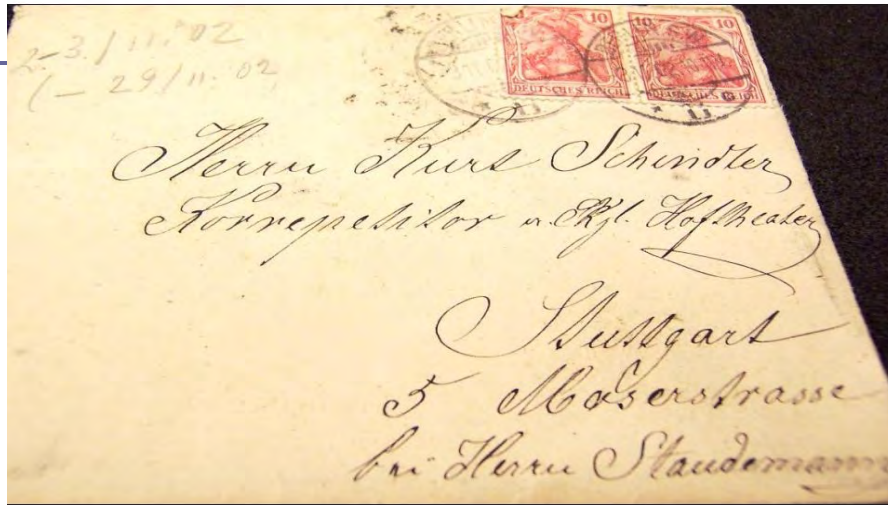 2-3./11.02
(- 29/11.02
10 10
DEUTSCHES REICH
Herrn Kurt Schindler
Korrepetitor a. Kgl. Hoftheater
Stuttgart
5 Moserstrasse
bei Herrn Staudemann